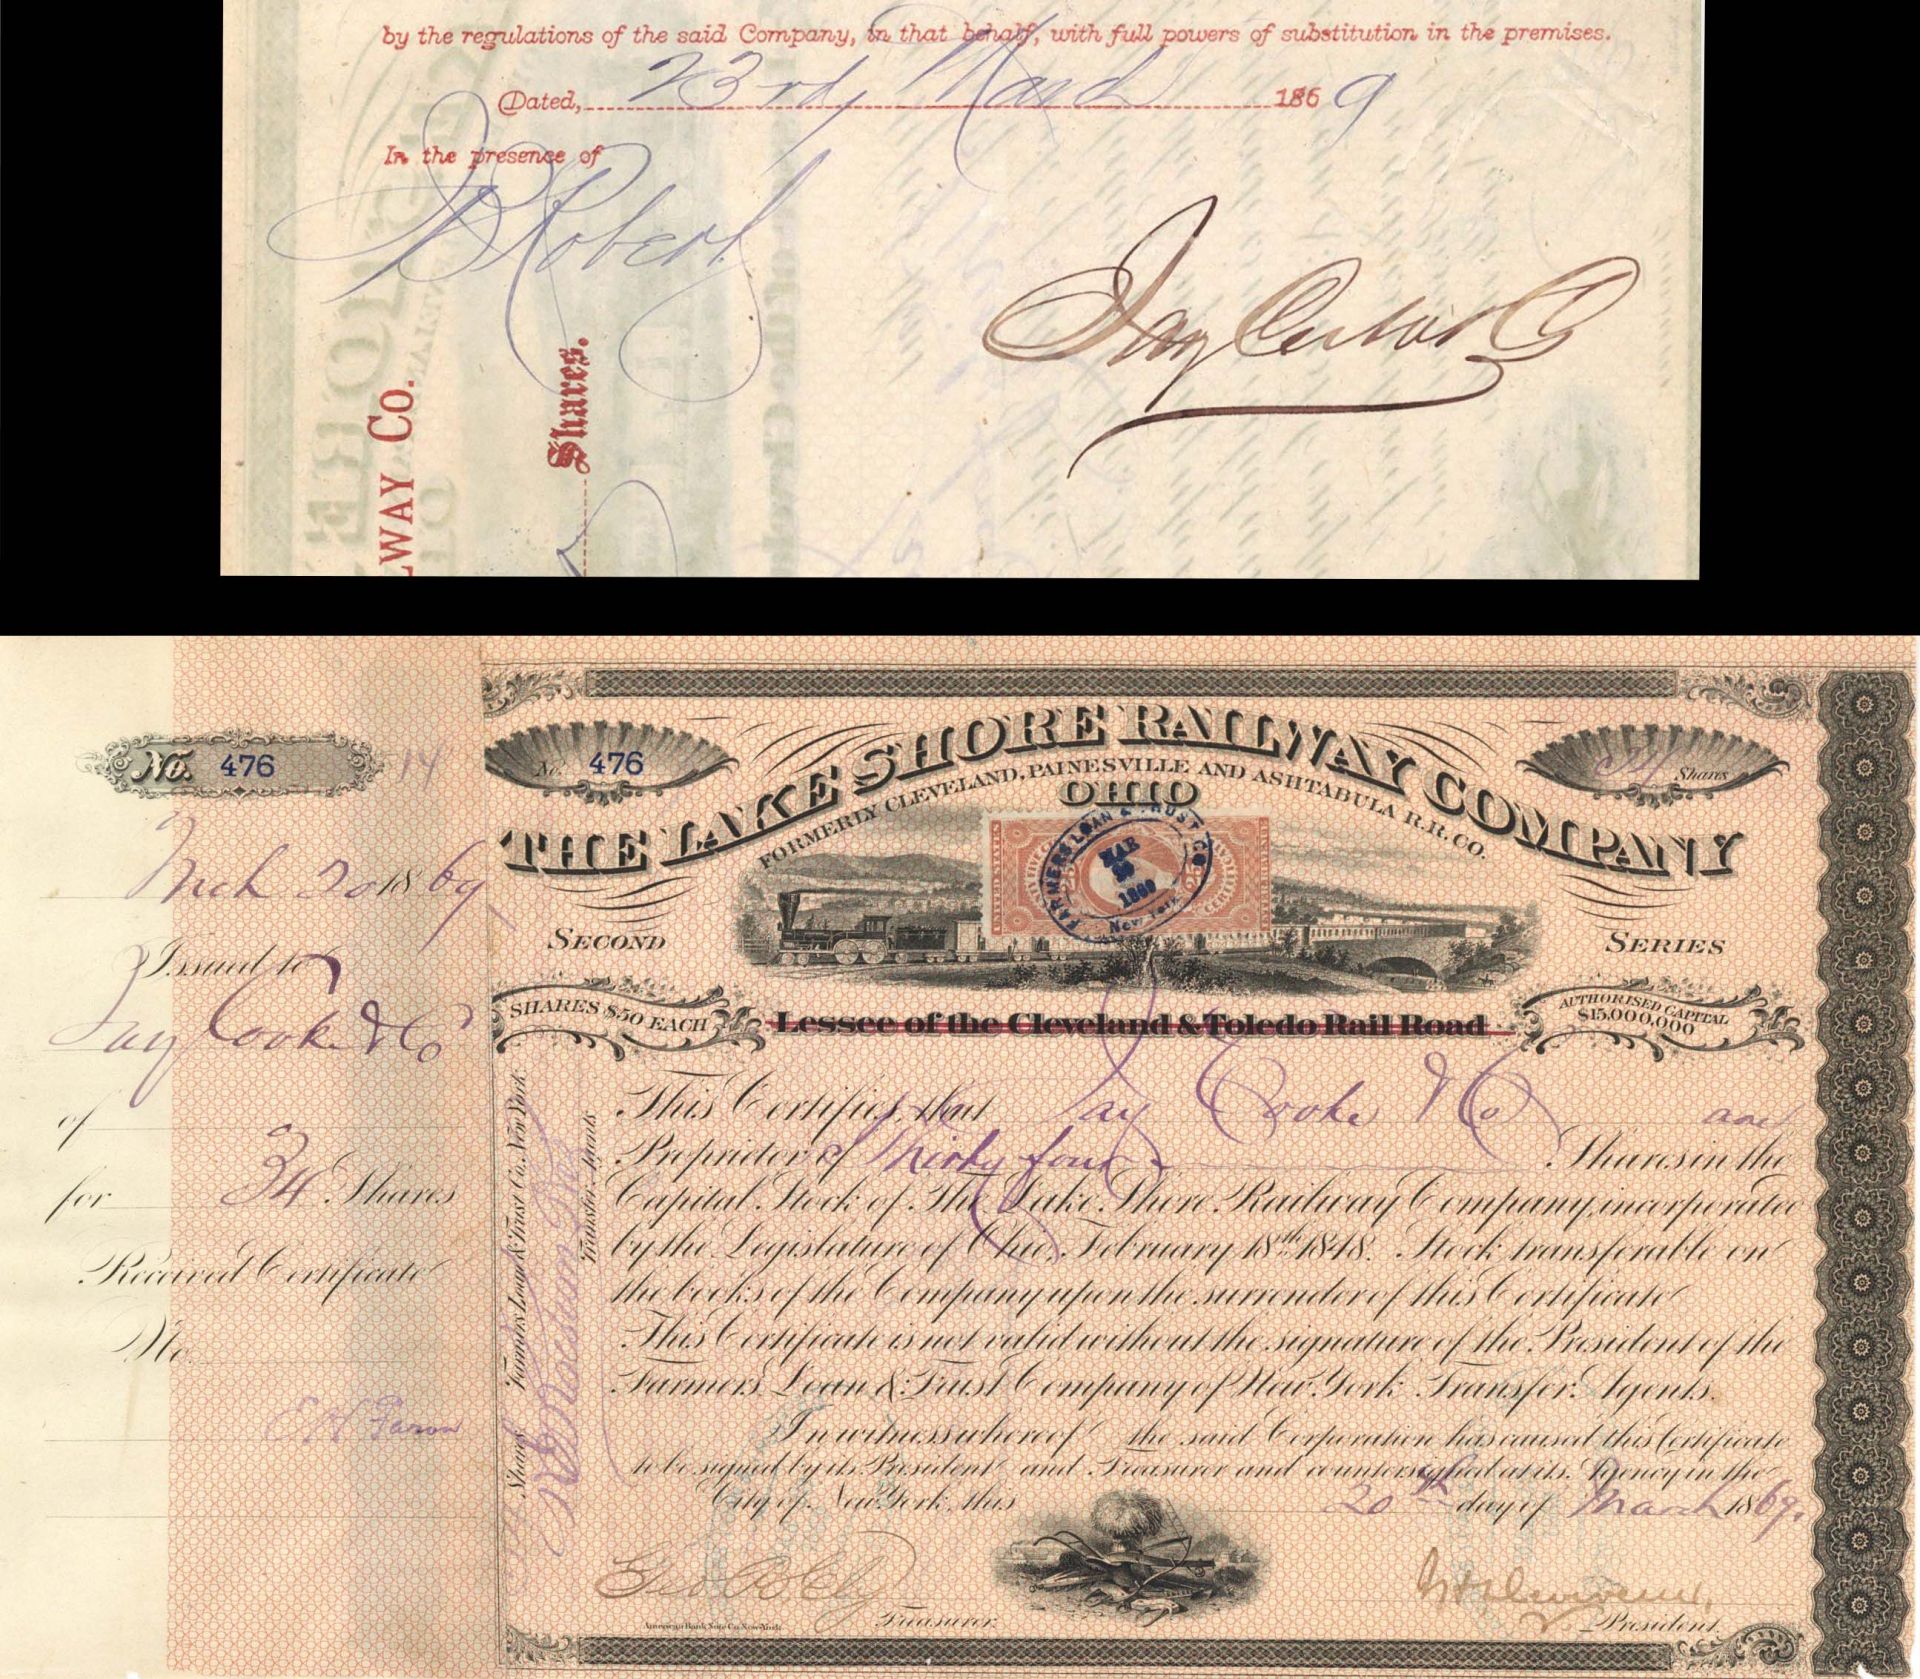 by the regulations of the said Company, in that behalf, with full powers of substitution in the premises.
Dated, 23rd, March 1869
In the presence of
Roberts
Jay Cooke & Co
LWAY CO.
Shares.
No. 476
14
Mch 20 1869
Issued to
Jay Cooke & Co
of
for 34 Shares
Received Certificate
No.
No. 476
34 Shares
THE LAKE SHORE RAILWAY COMPANY
FORMERLY CLEVELAND, PAINESVILLE AND ASHTABULA R.R. CO.
OHIO
UNITED STATES
FARMERS LOAN & TRUST CO
MAR
20
1869
New York
SECOND
SERIES
SHARES $50 EACH
AUTHORISED CAPITAL
$15,000,000
Lessee of the Cleveland & Toledo Rail Road
This Certifies that Jay Cooke & Co are
Proprietor of Thirty four Shares in the
Capital Stock of The Lake Shore Railway Company, incorporated
by the Legislature of Ohio, February 18th 1848. Stock transferable on
the books of the Company upon the surrender of this Certificate
This Certificate is not valid without the signature of the President of the
Farmers Loan & Trust Company of New York Transfer Agents.
In witness whereof the said Corporation has caused this Certificate
to be signed by its President and Treasurer and countersigned at its Agency in the
City of New York, this 20th day of March 1869.
Shares Farmers Loan & Trust Co. New York
Transfer Agents
Treasurer
President
American Bank Note Co. New-York